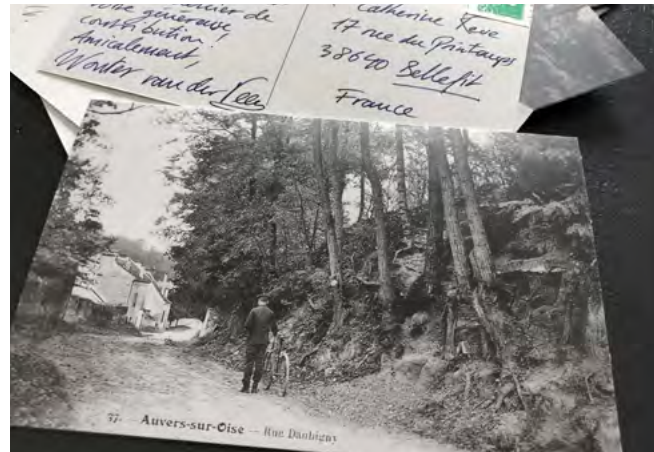 de
votre généreuse
contribution !
Amicalement,
Wouter van der Veen
Catherine
17 rue du Printemps
38640 Bellefit
France
77. Auvers-sur-Oise — Rue Daubigny